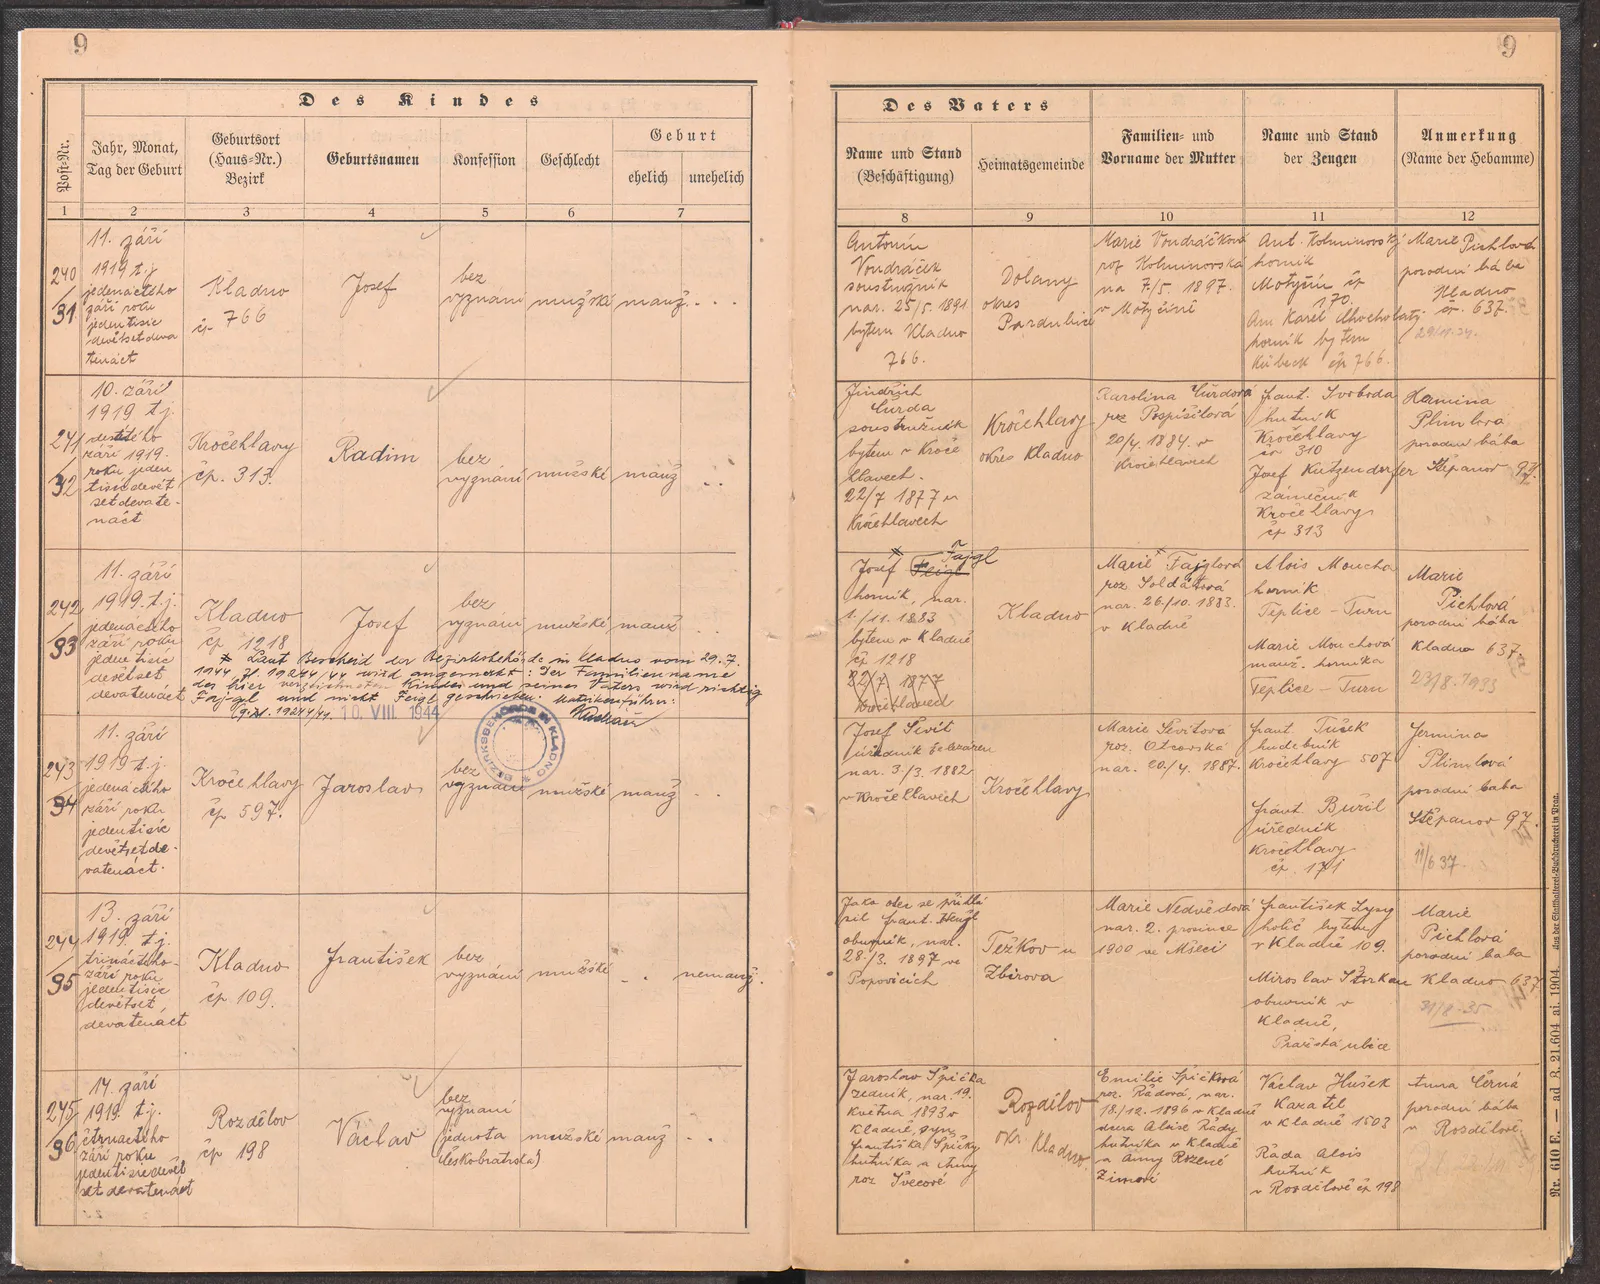 9
Des Kindes
Post-Nr.
Jahr, Monat,
Tag der Geburt
Geburtsort
(Haus-Nr.)
Bezirk
Geburtsnamen
Konfession
Geschlecht
Geburt
ehelich
unehelich
1 2 3 4 5 6 7
240/31
11. září
1919 t.j.
jedenáctého
září roku
jedentisíc
devětset deva
tenáct
Kladno
čp 766
Josef
bez
vyznání
mužské
manž.
10. září
1919 t.j.
desátého
září 1919.
roku jeden
tisíc devět
set devate-
náct
241/32
Kročehlavy
čp. 313.
Radim
bez
vyznání
mužské
manž
11. září
1919 t.j.
jedenáctého
září roku
jedentisíc
devětset
devatenáct
242/93
Kladno
čp 1218
Josef
bez
vyznání
mužské
manž
* Laut Bescheid der Bezirksbehörde in Kladno vom 29.7.
1944 Zl. 19244/44 wird angemerkt: Der Familienname
des hier verzeichneten Kindes und seines Vaters wird richtig
Fajgl und nicht Feigl geschrieben. Matrikenführer:
19244/44. 10. VIII. 1944
BEZIRKSBEHÖRDE IN KLADNO
11. září
1919 t.j.
jedenáctého
září roku
jedentisíc
devětset de-
vatenáct.
243/94
Kročehlavy
čp 597.
Jaroslav
bez
vyznání
mužské
manž
13. září
1919. t.j.
třináctého
září roku
jedentisíc
devětset
devatenáct
244/95
Kladno
čp 109.
František
bez
vyznání
mužské
nemanž.
14. září
1919. t.j.
čtrnáctého
září roku
jedentisíc devět
set devatenáct
245/96
Rozdělov
čp 198
Václav
bez
vyznání
(jednota
českobratrská)
mužské
manž
9
Des Vaters
Name und Stand
(Beschäftigung)
Heimatsgemeinde
Familien- und
Vorname der Mutter
Name und Stand
der Zeugen
Anmerkung
(Name der Hebamme)
8 9 10 11 12
Antonín
Vondráček
soustružník
nar. 25/5. 1891
bytem Kladno
766.
Dolany
okres
Pardubice
Marie Vondráčková
roz Holminovská
na 7/5. 1897.
v Motyčíně
Ant. Holminovský
horník
Motyčín čp
170.
horník bytem
Kübeck čp 766.
Marie Pichlová
porodní bába
Kladno
čp. 637.
Jindřich
Čurda
soustružník
bytem v Kroče
hlavech.
22/7 1877 v
Kročehlavech
Kročehlavy
okres Kladno
Karolina Čurdová
roz Pospíšilová
20/4. 1884. v
Kročehlavech
Frant. Svoboda
hutník
Kročehlavy
čp 310
Josef Kutzendorfer
zámečník
Kročehlavy
čp 313
Hermina
Plimlová
porodní bába
Štěpánov 97.
Josef Feigl Fajgl
horník, nar.
1./11. 1883
bytem v Kladně
čp 1218
22/7 1877
Kročehlavech
Kladno
Marie Fajglová
roz. Soldátová
nar. 26./10. 1883.
v Kladně
Alois Moucha
horník
Teplice-Turn
Marie Mouchová
manž. horníka
Teplice-Turn
Marie
Pichlová
porodní bába
Kladno 637.
23/8. 1935
Josef Sivít
úředník železáren
nar. 3./3. 1882
v Kročehlavech
Kročehlavy
Marie Sivítová
roz. Otcovská
nar. 20./4. 1887.
Frant. Tušek
hudebník
Kročehlavy 507
Frant. Bužil
úředník
Kročehlavy
čp. 171
Jermina
Plimlová
porodní bába
Štěpánov 97.
11/6 37.
Jako otec se přihlá
sil Frant. Hengl
obuvník, nar.
28./3. 1897 ve
Popovicích
Těžkov u
Zbirova
Marie Nedvědová
nar. 2. prosince
1900 ve Mšeci
František Lysý
holič bytem
v Kladně 109.
Miroslav Štorkan
obuvník v
Kladně,
Pražská ulice
Marie
Pichlová
porodní bába
Kladno 637
31/8. 35
Jaroslav Špička
zedník, nar. 19.
května 1893 v
Kladně, syn
Františka Špičky
hutníka a Anny
roz Švecové
Rozdělov
okr. Kladno.
Emilie Špičková
roz. Rádová, nar.
18./12. 1896 v Kladně
dcera Aloise Rády
hutníka v Kladně
a Anny Rozené
Zimové
Václav Hušek
Karatel
v Kladně 1503
Ráda Alois
hutník
v Rozdělově čp 198
Anna Černá
porodní bába
v Rozdělově
Nr. 610 E. — ad Z. 21.604 ai. 1904. Aus der Statthalterei-Buchdruckerei in Prag.